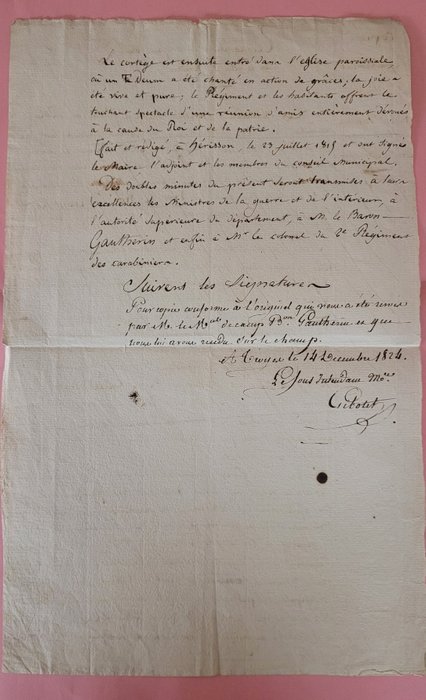 Le cortège est ensuite entré dans l'église paroissiale
où un Te Deum a été chanté en action de grâces; la joie a
été vive et pure; le Régiment et les habitants offrent le
touchant spectacle d'une réunion d'amis entièrement dévoués
à la cause du Roi et de la patrie.
fait et rédigé, à Hérisson, le 23 juillet 1815 et ont signés
le Maire l'adjoint et les membres du conseil Municipal.
Des doubles minutes du présent seront transmises à leurs
excellences les Ministres de la guerre et de l'intérieur, à
l'autorité Supérieure du département, à M. le Baron
Gautherin et enfin à Mr le colonel du 2e Régiment
des carabiniers.
Suivent les Signatures
Pour copie conforme à l'original qui nous a été remis
par M. le Mal de camp Bon Gautherin et que
nous lui avons rendu sur le champ.
A le 14 Décembre 1824.
Le Sous Intendant Mre